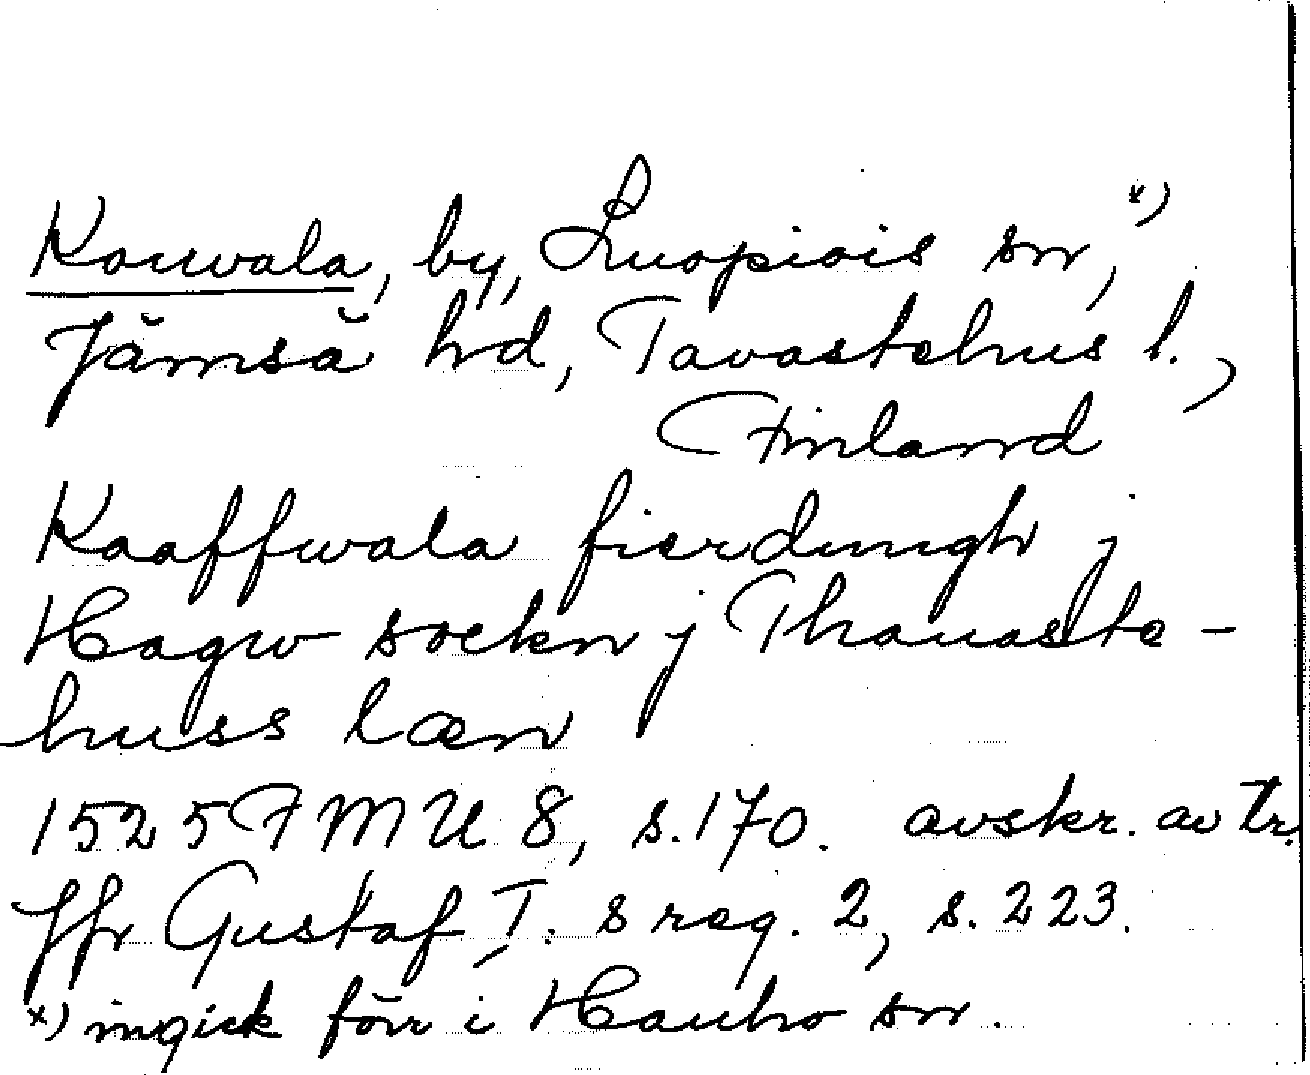 Kouvala, by, Luopiois sn, *)
Jämsä hd, Tavastehus l.,
Finland
Kaaffwala fierdungh j
Hagw sockn j Thauaste-
huss læn
1525 FMU 8, s. 170. avskr. av tr.
Jfr Gustaf I. s reg. 2, s. 223.
*) ingick förr i Hauho sn.